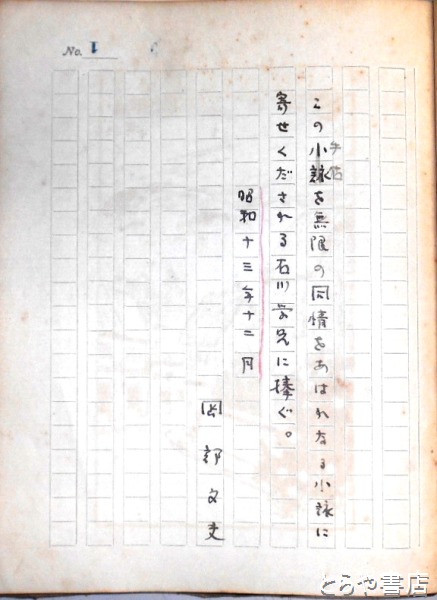 No. 1
この小詠を無限の同情をあはれなる小詠に
寄せくださる石川学兄に捧ぐ。
昭和十三年十二月
岡部文夫
とらや書店